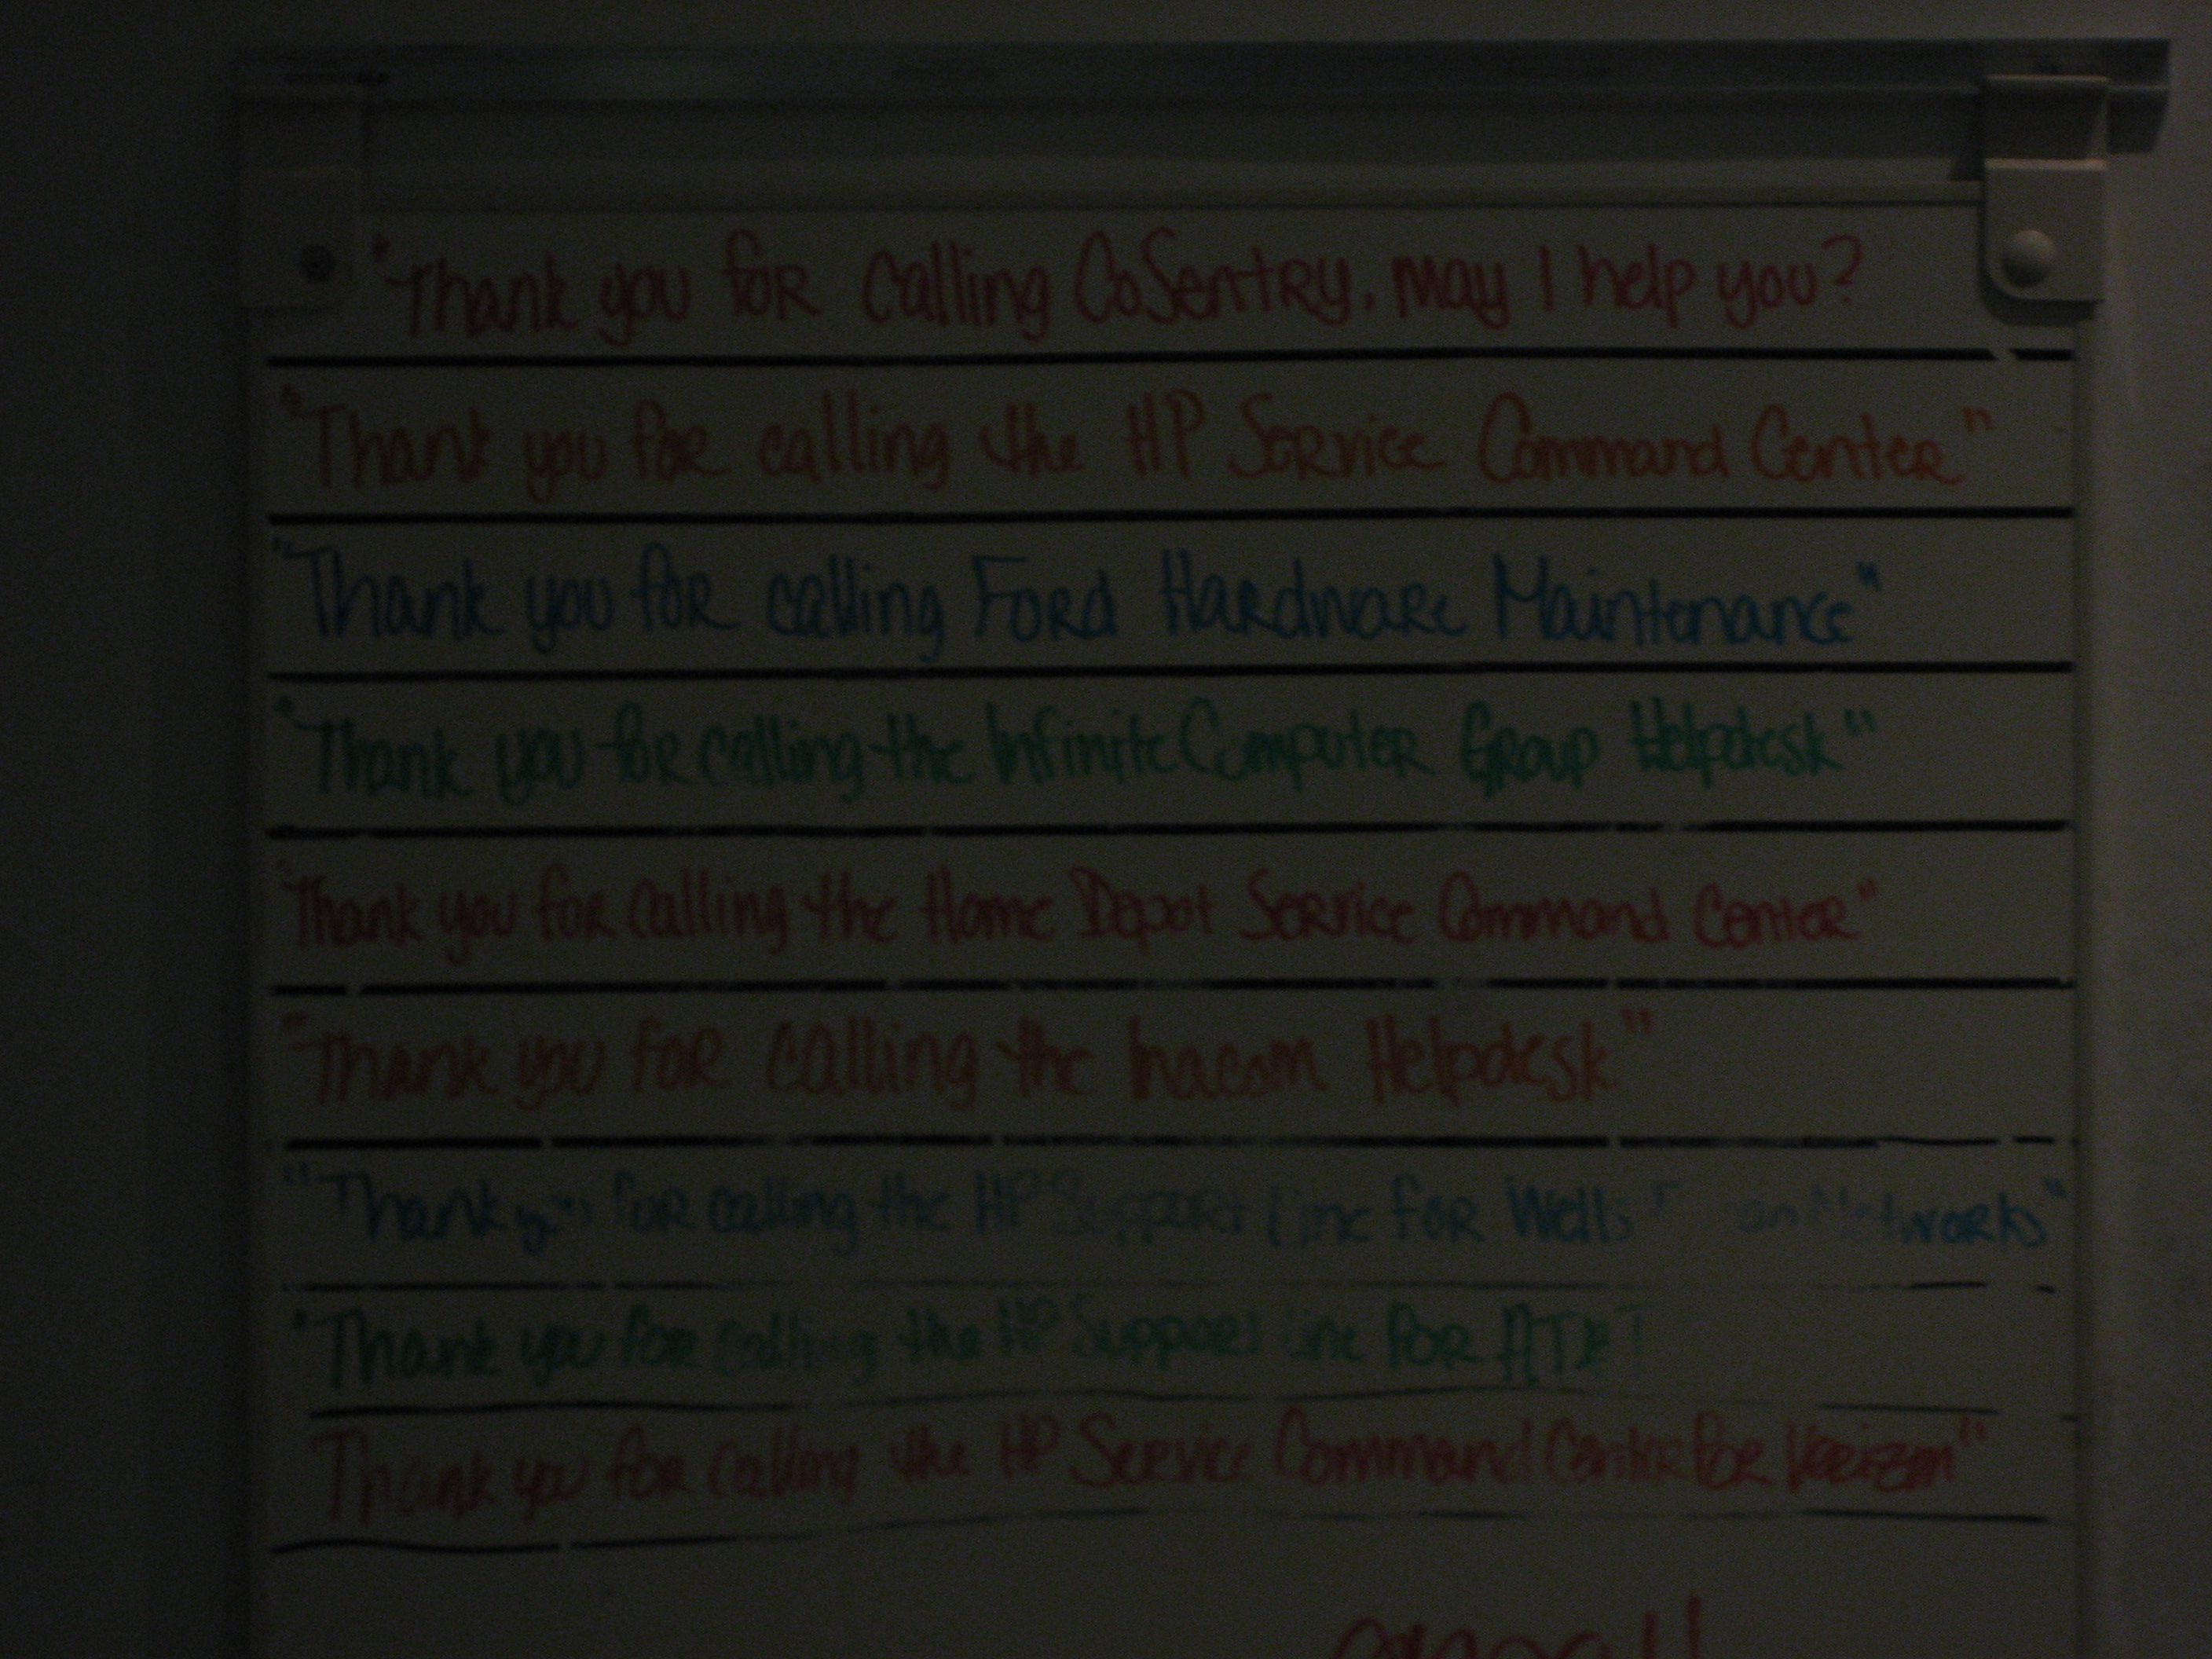 "Thank you for calling CoSentry. May I help you?
"Thank you for calling the HP Service Command Center"
"Thank you for calling Ford Hardware Maintenance"
"Thank you for calling the Infinite Computer Group Helpdesk"
"Thank you for calling the Home Depot Service Command Center"
"Thank you for calling the Inacom Helpdesk"
"Thank you for calling the HP Support Line for Wells Networks"
"Thank you for calling the HP Support Line for AT&T
Thank you for calling the HP Service Command Center for Verizon"